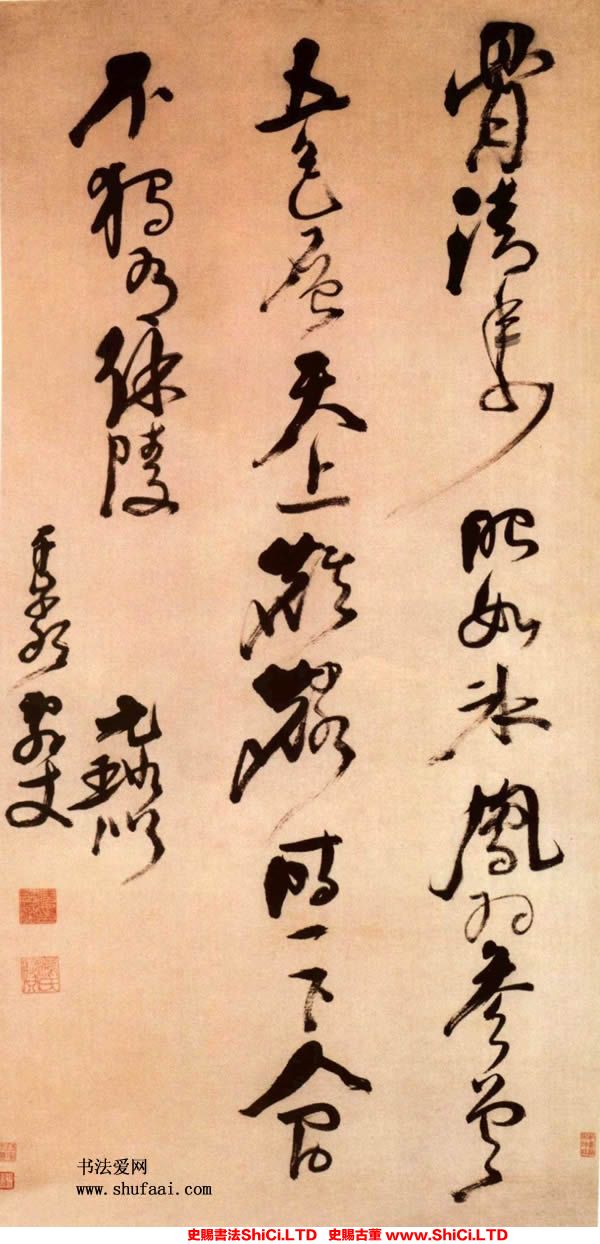 骨清年少眼如冰鳳羽參差
五色層天上麒麟時一下人間
不獨有徐陵
元璐似
丈
书法爱网
www.shufaai.com
史賜書法ShiCi.LTD 史賜古董 www.ShiCi.LTD